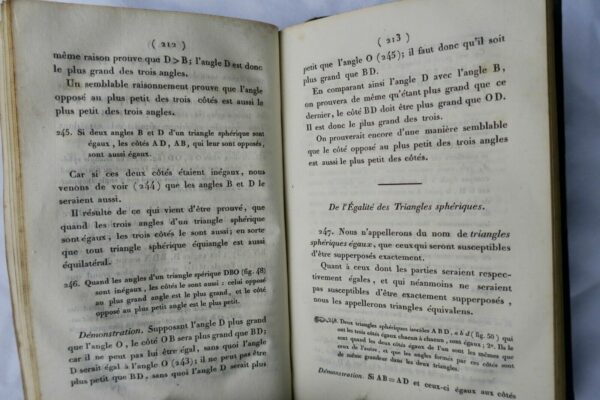 ( 212 )
même raison prouve que D > B; l'angle D est donc
le plus grand des trois angles.
Un semblable raisonnement prouve que l'angle
opposé au plus petit des trois côtés est aussi le
plus petit des trois angles.
245. Si deux angles B et D d'un triangle sphérique sont
égaux, les côtés AD, AB, qui leur sont opposés,
sont aussi égaux.
Car si ces deux côtés étaient inégaux, nous
venons de voir (244) que les angles B et D le
seraient aussi.
Il résulte de ce qui vient d'être prouvé, que
quand les trois angles d'un triangle sphérique
sont égaux, les trois côtés le sont aussi; en sorte
que tout triangle sphérique équiangle est aussi
équilatéral.
246. Quand les angles d'un triangle spérique DBO (fig. 48)
sont inégaux, les côtés le sont aussi : celui opposé
au plus grand angle est le plus grand, et le côté
opposé au plus petit angle est le plus petit.
Démonstration. Supposant l'angle D plus grand
que l'angle O, le côté OB sera plus grand que BD;
car il ne peut pas lui être égal, sans quoi l'angle
D serait égal à l'angle O (243); il ne peut pas être
plus petit que BD, sans quoi l'angle D serait plus
( 213 )
petit que l'angle O (245); il faut donc qu'il soit
plus grand que BD.
En comparant ainsi l'angle D avec l'angle B,
on prouvera de même qu'étant plus grand que ce
dernier, le côté BD doit être plus grand que OD.
Il est donc le plus grand des trois.
On prouverait encore d'une manière semblable
que le côté opposé au plus petit des trois angles
est aussi le plus petit des côtés.
De l'Égalité des Triangles sphériques.
247. Nous n'appellerons du nom de triangles
sphériques égaux, que ceux qui seront susceptibles
d'être supperposés exactement.
Quant à ceux dont les parties seraient respec-
tivement égales, et qui néanmoins ne seraient
pas susceptibles d'être exactement supperposés,
nous les appellerons triangles équivalens.
248. Deux triangles sphériques isocèles ABD, abd (fig. 50) qui
ont les trois côtés égaux chacun à chacun, sont égaux; 2°. Ils le
sont quand les deux côtés égaux de l'un sont les mêmes que
ceux de l'autre, et que les angles formés par ces côtés sont
de même grandeur dans les deux triangles.
Démonstration. Si AB = AD et ceux-ci égaux aux côtés